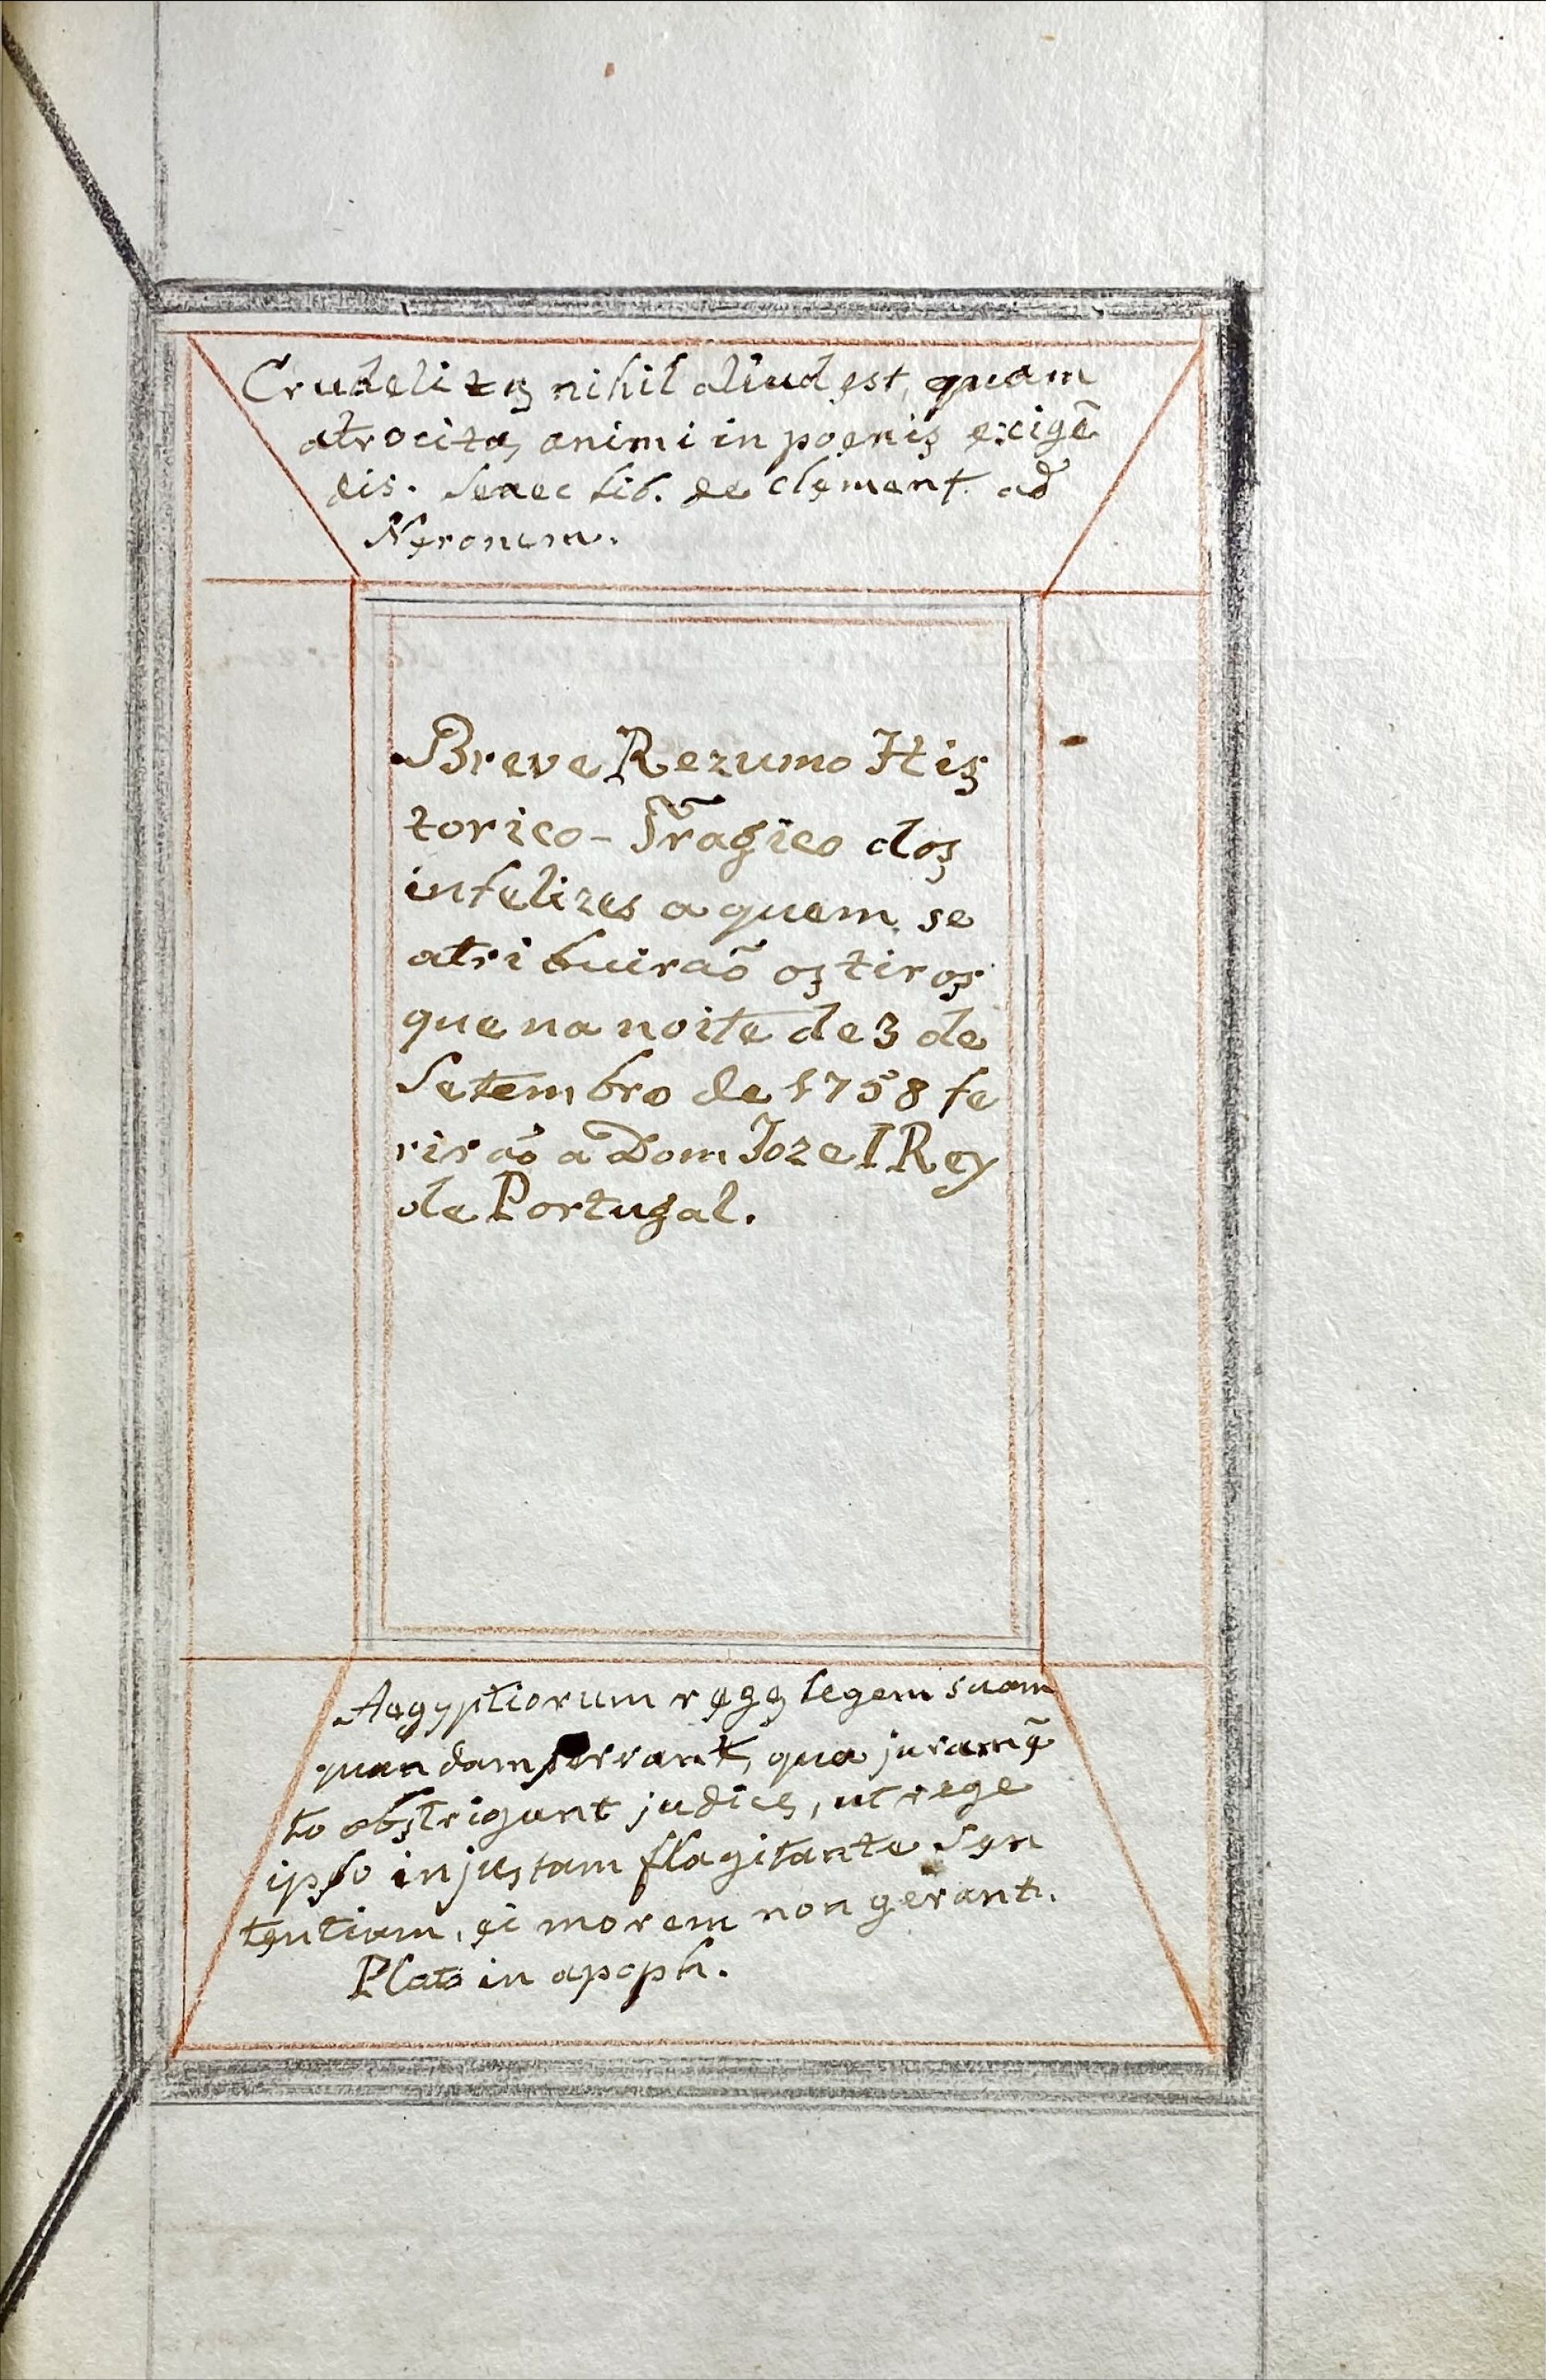 Crudelitas nihil aliud est, quam
atrocitas animi in poenis exigẽ
dis. Senec lib. de clement. ad
Neronem.
Breve Rezumo His
torico-Tragico dos
infelizes a quem se
atribuiraõ os tiros
que na noite de 3 de
Setembro de 1758 fe
riraõ a Dom Joze I Rey
de Portugal.
Aegyptiorum reges legem suam
quandam servant, qua juramẽ
to obstrigunt judices, ut rege
ipso injustam flagitante sen
tentiam, ei morem non gerant.
Plato in apoph.